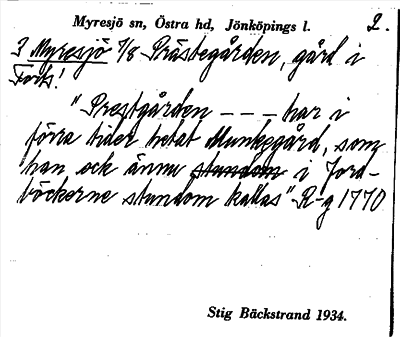 Myresjö sn, Östra hd, Jönköpings l. 2.
3 Myresjö 7/8 Prästegården, gård i
Forts!
"Prestgården - - - har i
förra tider hetat Munkegård, som
han och ännu stundom i Jord-
böckerne stundom kallas" R-g 1770
Stig Bäckstrand 1934.